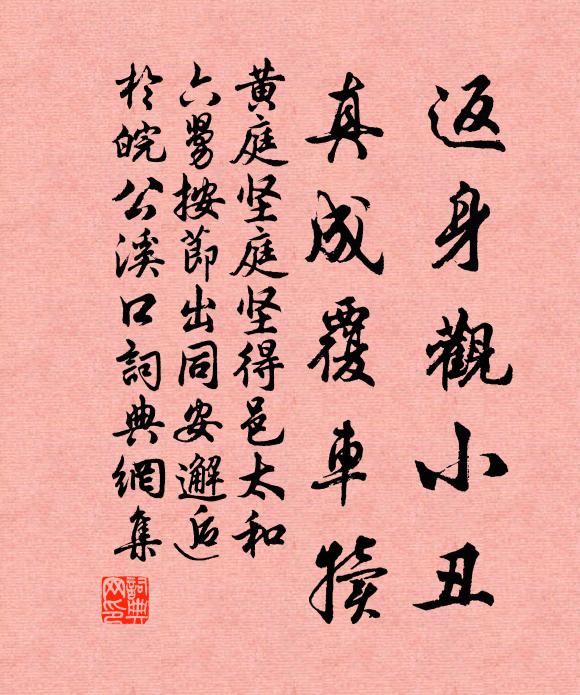 返身觀小丑
真成覆車犢
黄庭坚庭坚得邑太和
六舅按節出同安邂逅
於皖公溪口詞典網集
詞典網印